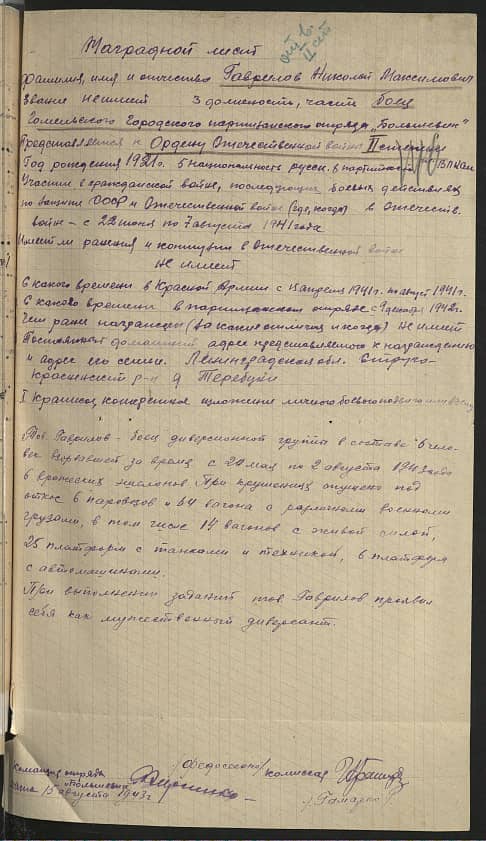 Наградной лист
от. в. II ст
Фамилия, имя и отчество Гаврилов Николай Максимович
Звание не имеет 3 должность, часть боец
Гомельского Городского партизанского отряда „Большевик"
Представляется к Ордену Отечественной войны II степени
Год рождения 1921г. 5 национальность русск. 6 партийность ВЛКСМ
Участие в гражданской войне, последующих боевых действиях
по защите СССР и Отечественной войне (где, когда) в отечеств.
войне – с 22 июня по 7 августа 1941 года
Имеет ли ранения и контузии в Отечественной войне
не имеет
С какого времени в Красной Армии с апреля 1941г. по август 1941г.
С какого времени в партизанском отряде с 9 декабр 1942г.
Чем ранее награжден (за какие отличия и когда) не имеет
Постоянный домашний адрес представляемого к награждению
и адрес его семьи. Ленинградская обл. Струго-
красненский р-н д Теребуни
I Краткое, конкретное изложение личного боевого подвига или
Тов. Гаврилов – боец диверсионной группы в составе 6 чело-
век взорвавшей за время с 20 мая по 2 августа 1943 года
6 вражеских эшелонов При крушениях спущено под
откос 6 паровозов и 64 вагона с различными военными
грузами, в том числе 17 вагонов с живой силой,
25 платформ с танками и техникой, 6 платформ
с автомашинами.
При выполнении заданий тов. Гаврилов проявил
себя как мужественный диверсант.
Командир отряда
„Большевик"
/Федосеенко/
комиссар
15 августа 1943г
/Гамарко/